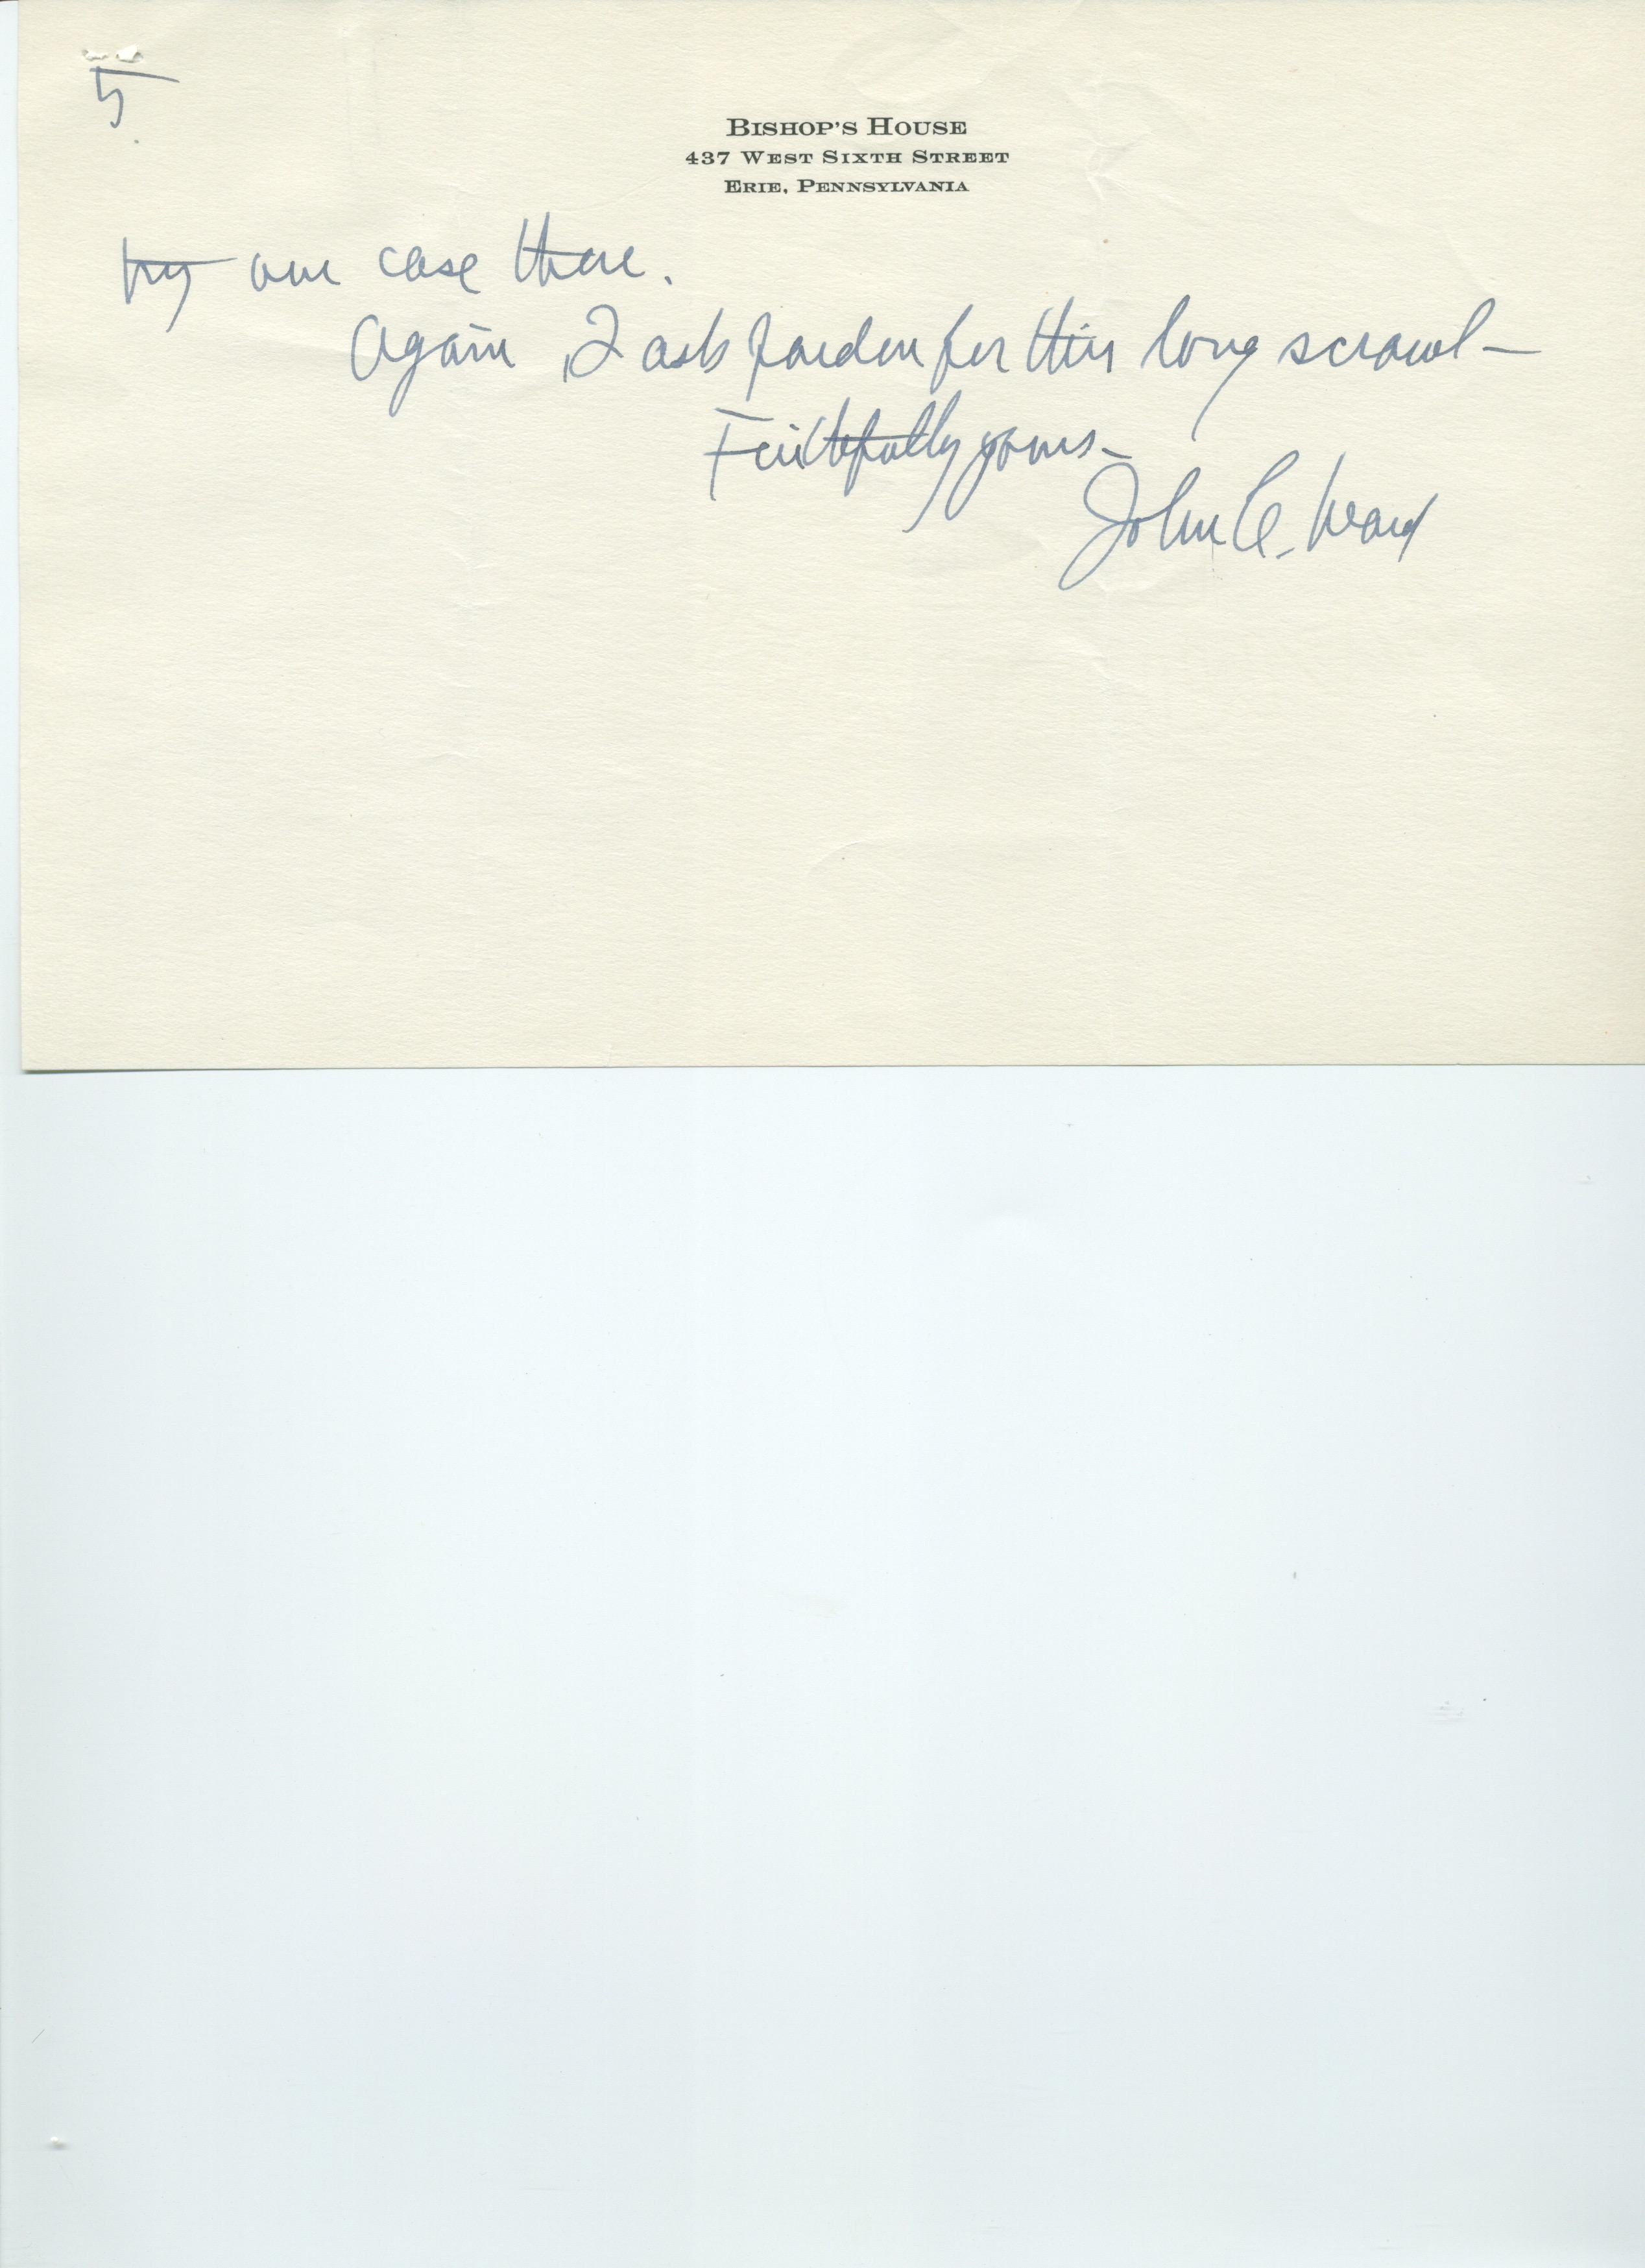 5
BISHOP'S HOUSE
437 WEST SIXTH STREET
ERIE, PENNSYLVANIA
try our case there.
Again, I ask pardon for this long scrawl –
Faithfully yours –
John C. Ward